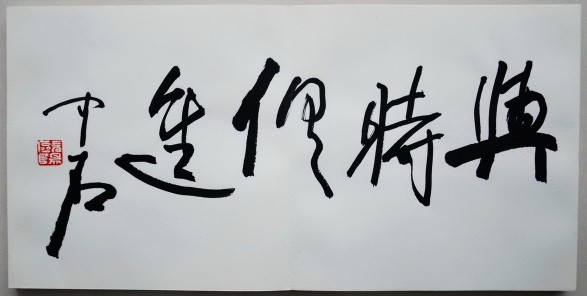 與時俱進
中石